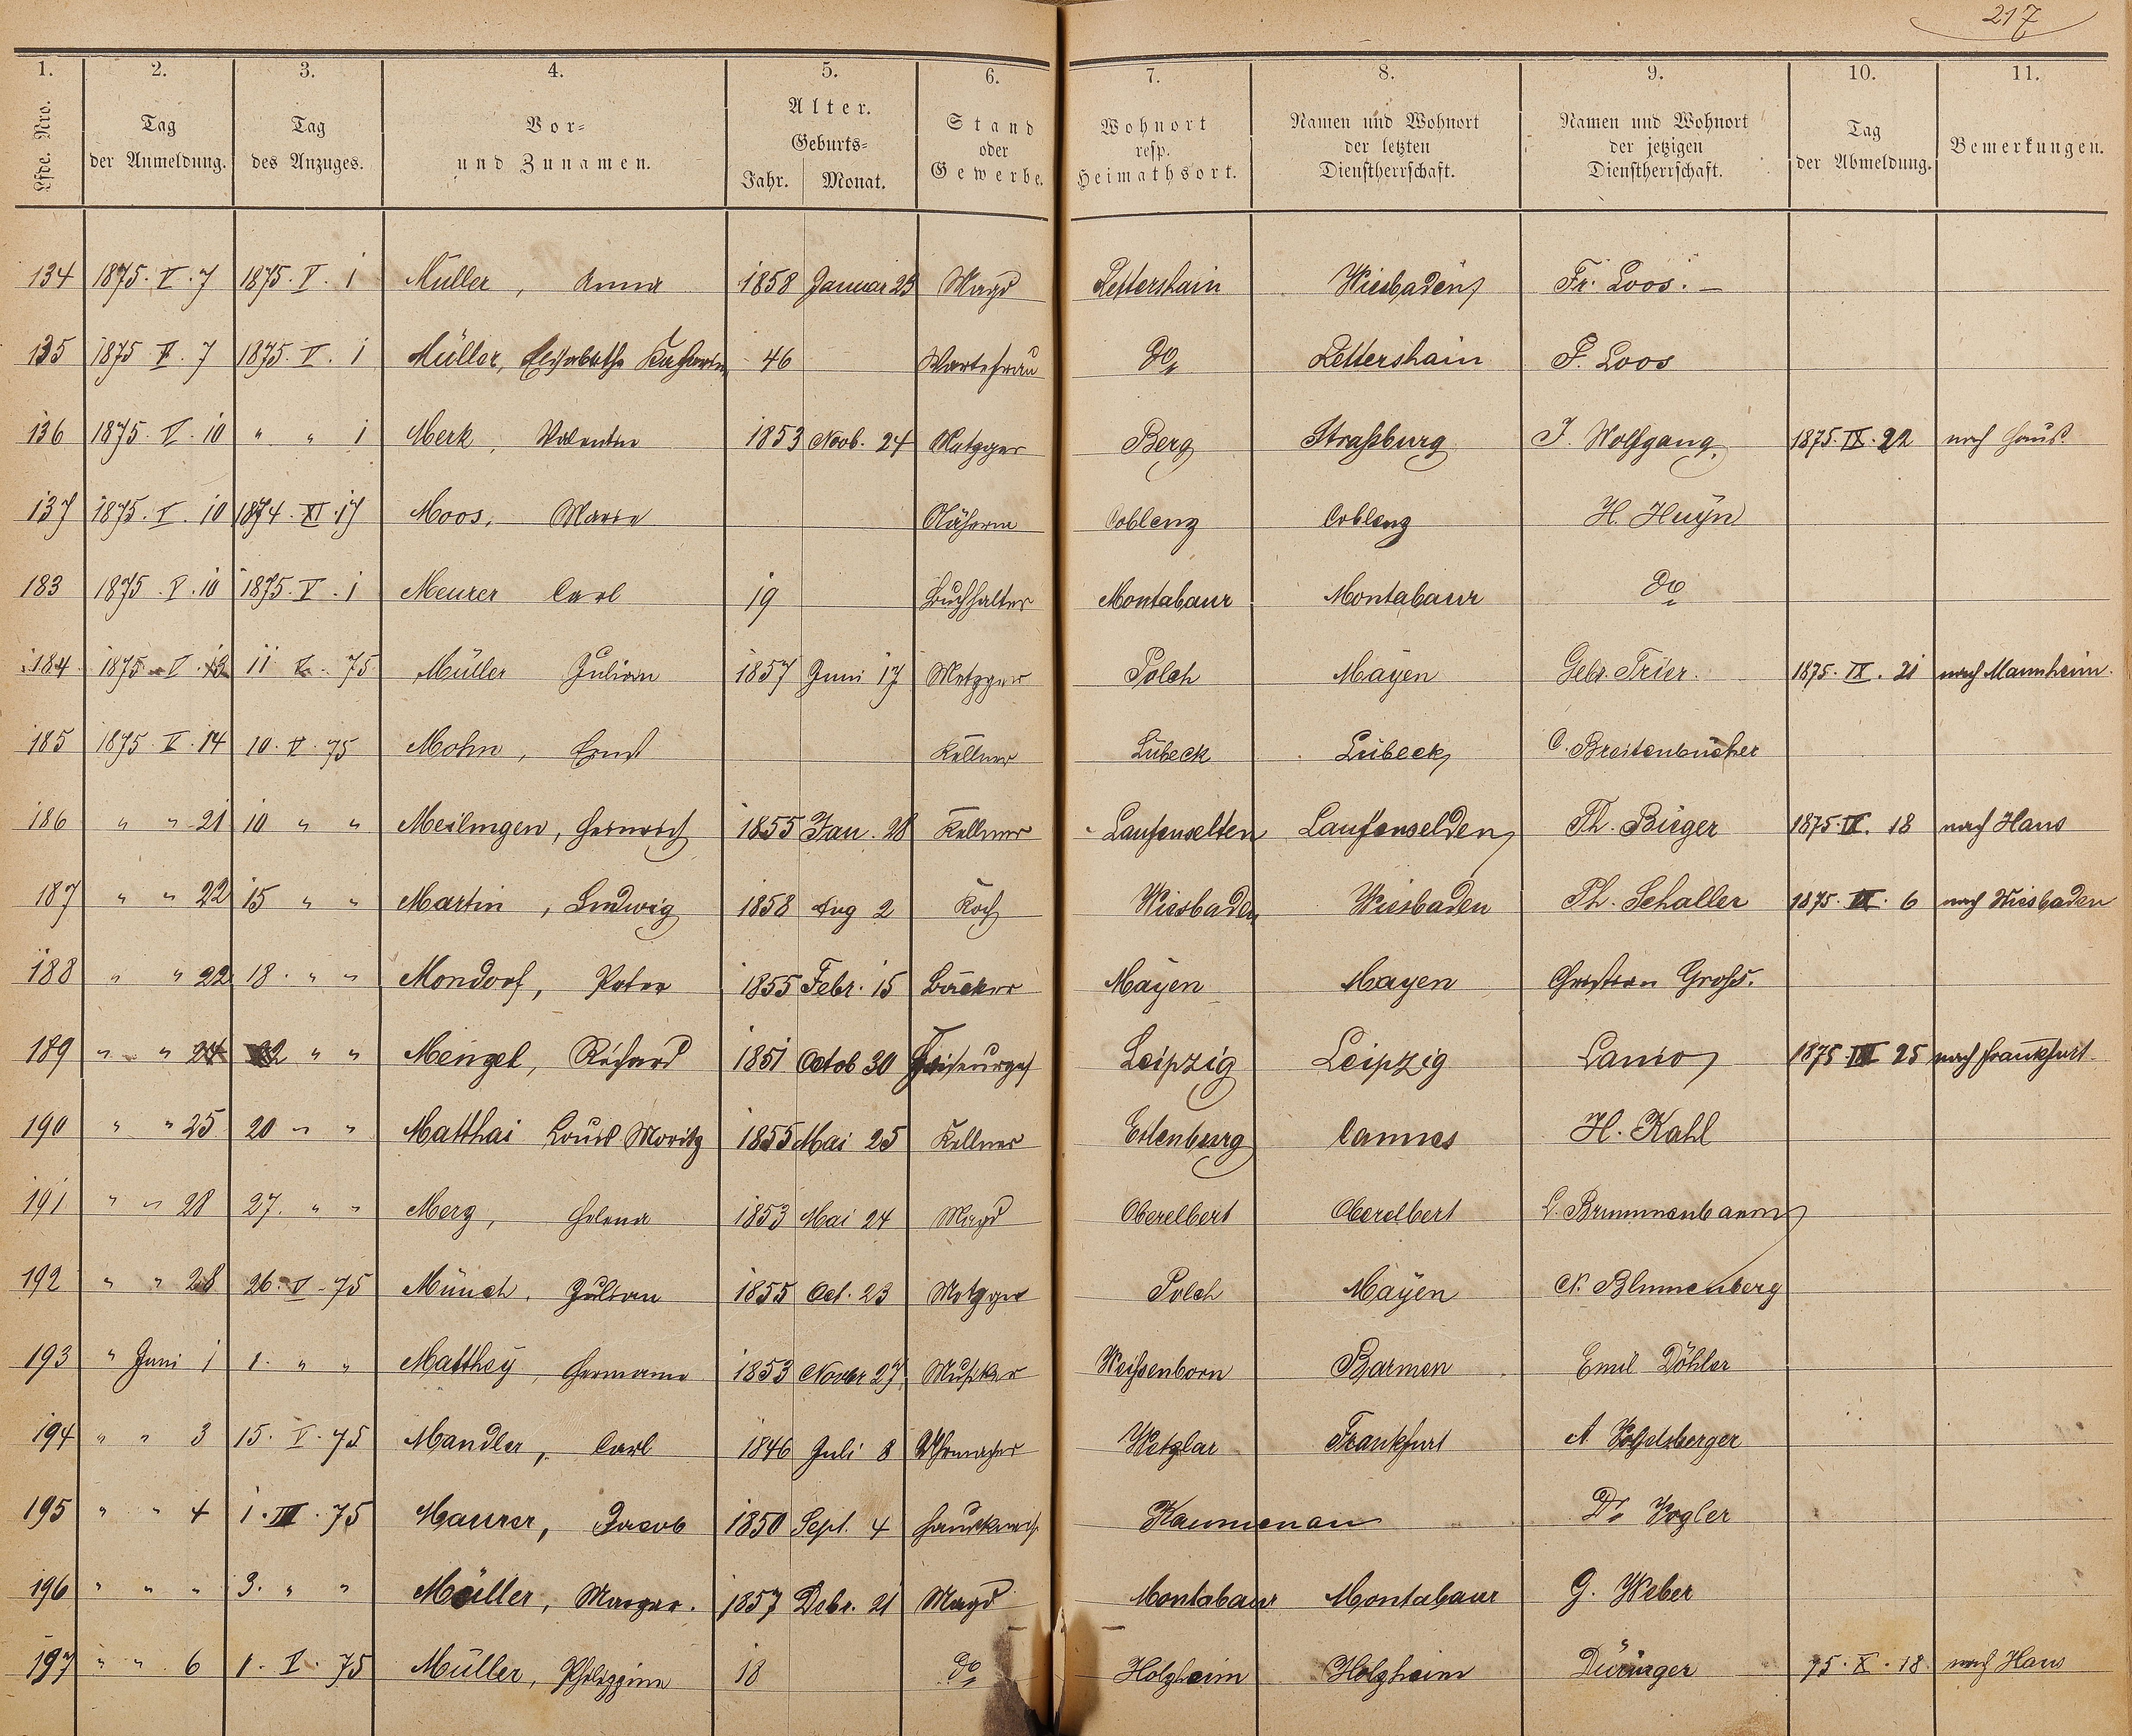 217
1. 2. 3. 4. 5. 6. 7. 8. 9. 10. 11.
Lfde. Nro. Tag der Anmeldung. Tag des Anzuges. Vor- und Zunamen. Alter. Geburts- Jahr. Monat. Stand oder Gewerbe. Wohnort resp. Heimathsort. Namen und Wohnort der letzten Dienstherrschaft. Namen und Wohnort der jetzigen Dienstherrschaft. Tag der Abmeldung. Bemerkungen.
134 1875. V. 7 1875. V. 1 Müller, Anna 1858 Januar 23 Magd Lettershain Wiesbaden Fr. Loos. —
135 1875 V. 7 1875. V. 1 Müller, Elisabetha 46 Wartefrau do Lettershain F. Loos
136 1875. V. 10 " " 1 Merk, Valentin 1853 Novb. 24 Metzger Berg Straßburg J. Wolfgang. 1875. IX. 22 nach Haus.
137 1875. V. 10 1874. XI. 17 Moos, Marie Näherin Coblenz Coblenz H. Huÿn
183 1875. V. 10 1875. V. 1 Meurer Carl 19 Buchhalter Montabaur Montabaur do
184 1875 V. 11 V. 75 Müller Julian 1857 Juni 17 Metzger Polch Maÿen Gebr. Trier. 1875. IX. 21 nach Mannheim.
185 1875. V. 14 10. V. 75 Mohn, Ernst Kellner Lübeck Lübeck C. Breitenbücher
186 " " 21 10 " " Meilingen, Heinrich 1855 Jan. 28 Kellner Laufenselten Laufenselden Th. Bieger 1875. IX. 18 nach Haus
187 " " 22 15 " " Martin, Ludwig 1858 Aug 2 Koch Wiesbaden Wiesbaden Th. Schaller 1875. 6 nach Wiesbaden
188 " " 22 18. " " Mondorf, Peter 1855 Febr. 15 Bäcker Maÿen Mayen Christian Groß.
189 " " 24 22 " " Mengel, Richard 1851 Octob 30 Leipzig Leipzig Lanio 1875. 25 nach Frankfurt.
190 " " 25 20 " " Matthai Louis Moritz 1855 Mai 25 Kellner Eilenburg Cannes H. Kahl
191 " " 28 27. " " Merz, Helena 1853 Mai 24 Magd Oberelbert Oberelbert L. Brunnenbaum
192 " " 28 26. V. 75 Münch, Julian 1855 Oct. 23 Metzger Polch Maÿen N. Blumenberg
193 " Juni 1 1. " " Matthey, Hermann 1853 Novbr 27. Musiker Weißenborn Barmen Emil Döhler
194 " " 3 15. V. 75 Mandler, Carl 1846 Juli 8 Uhrmacher Wetzlar Frankfurt A
195 " " 4 1. III. 75 Maurer, Jacob 1850 Sept. 4 Hausknecht Kaumenau Dr Vogler
196 " " " 3. " " Müller, Margar. 1857 Debr. 21 Magd Montabaur Montabaur G. Weber
197 " " 6 1. V. 75 Müller, Philippine 18 do Holzheim Holzheim Düringer 75. X. 18. nach Haus